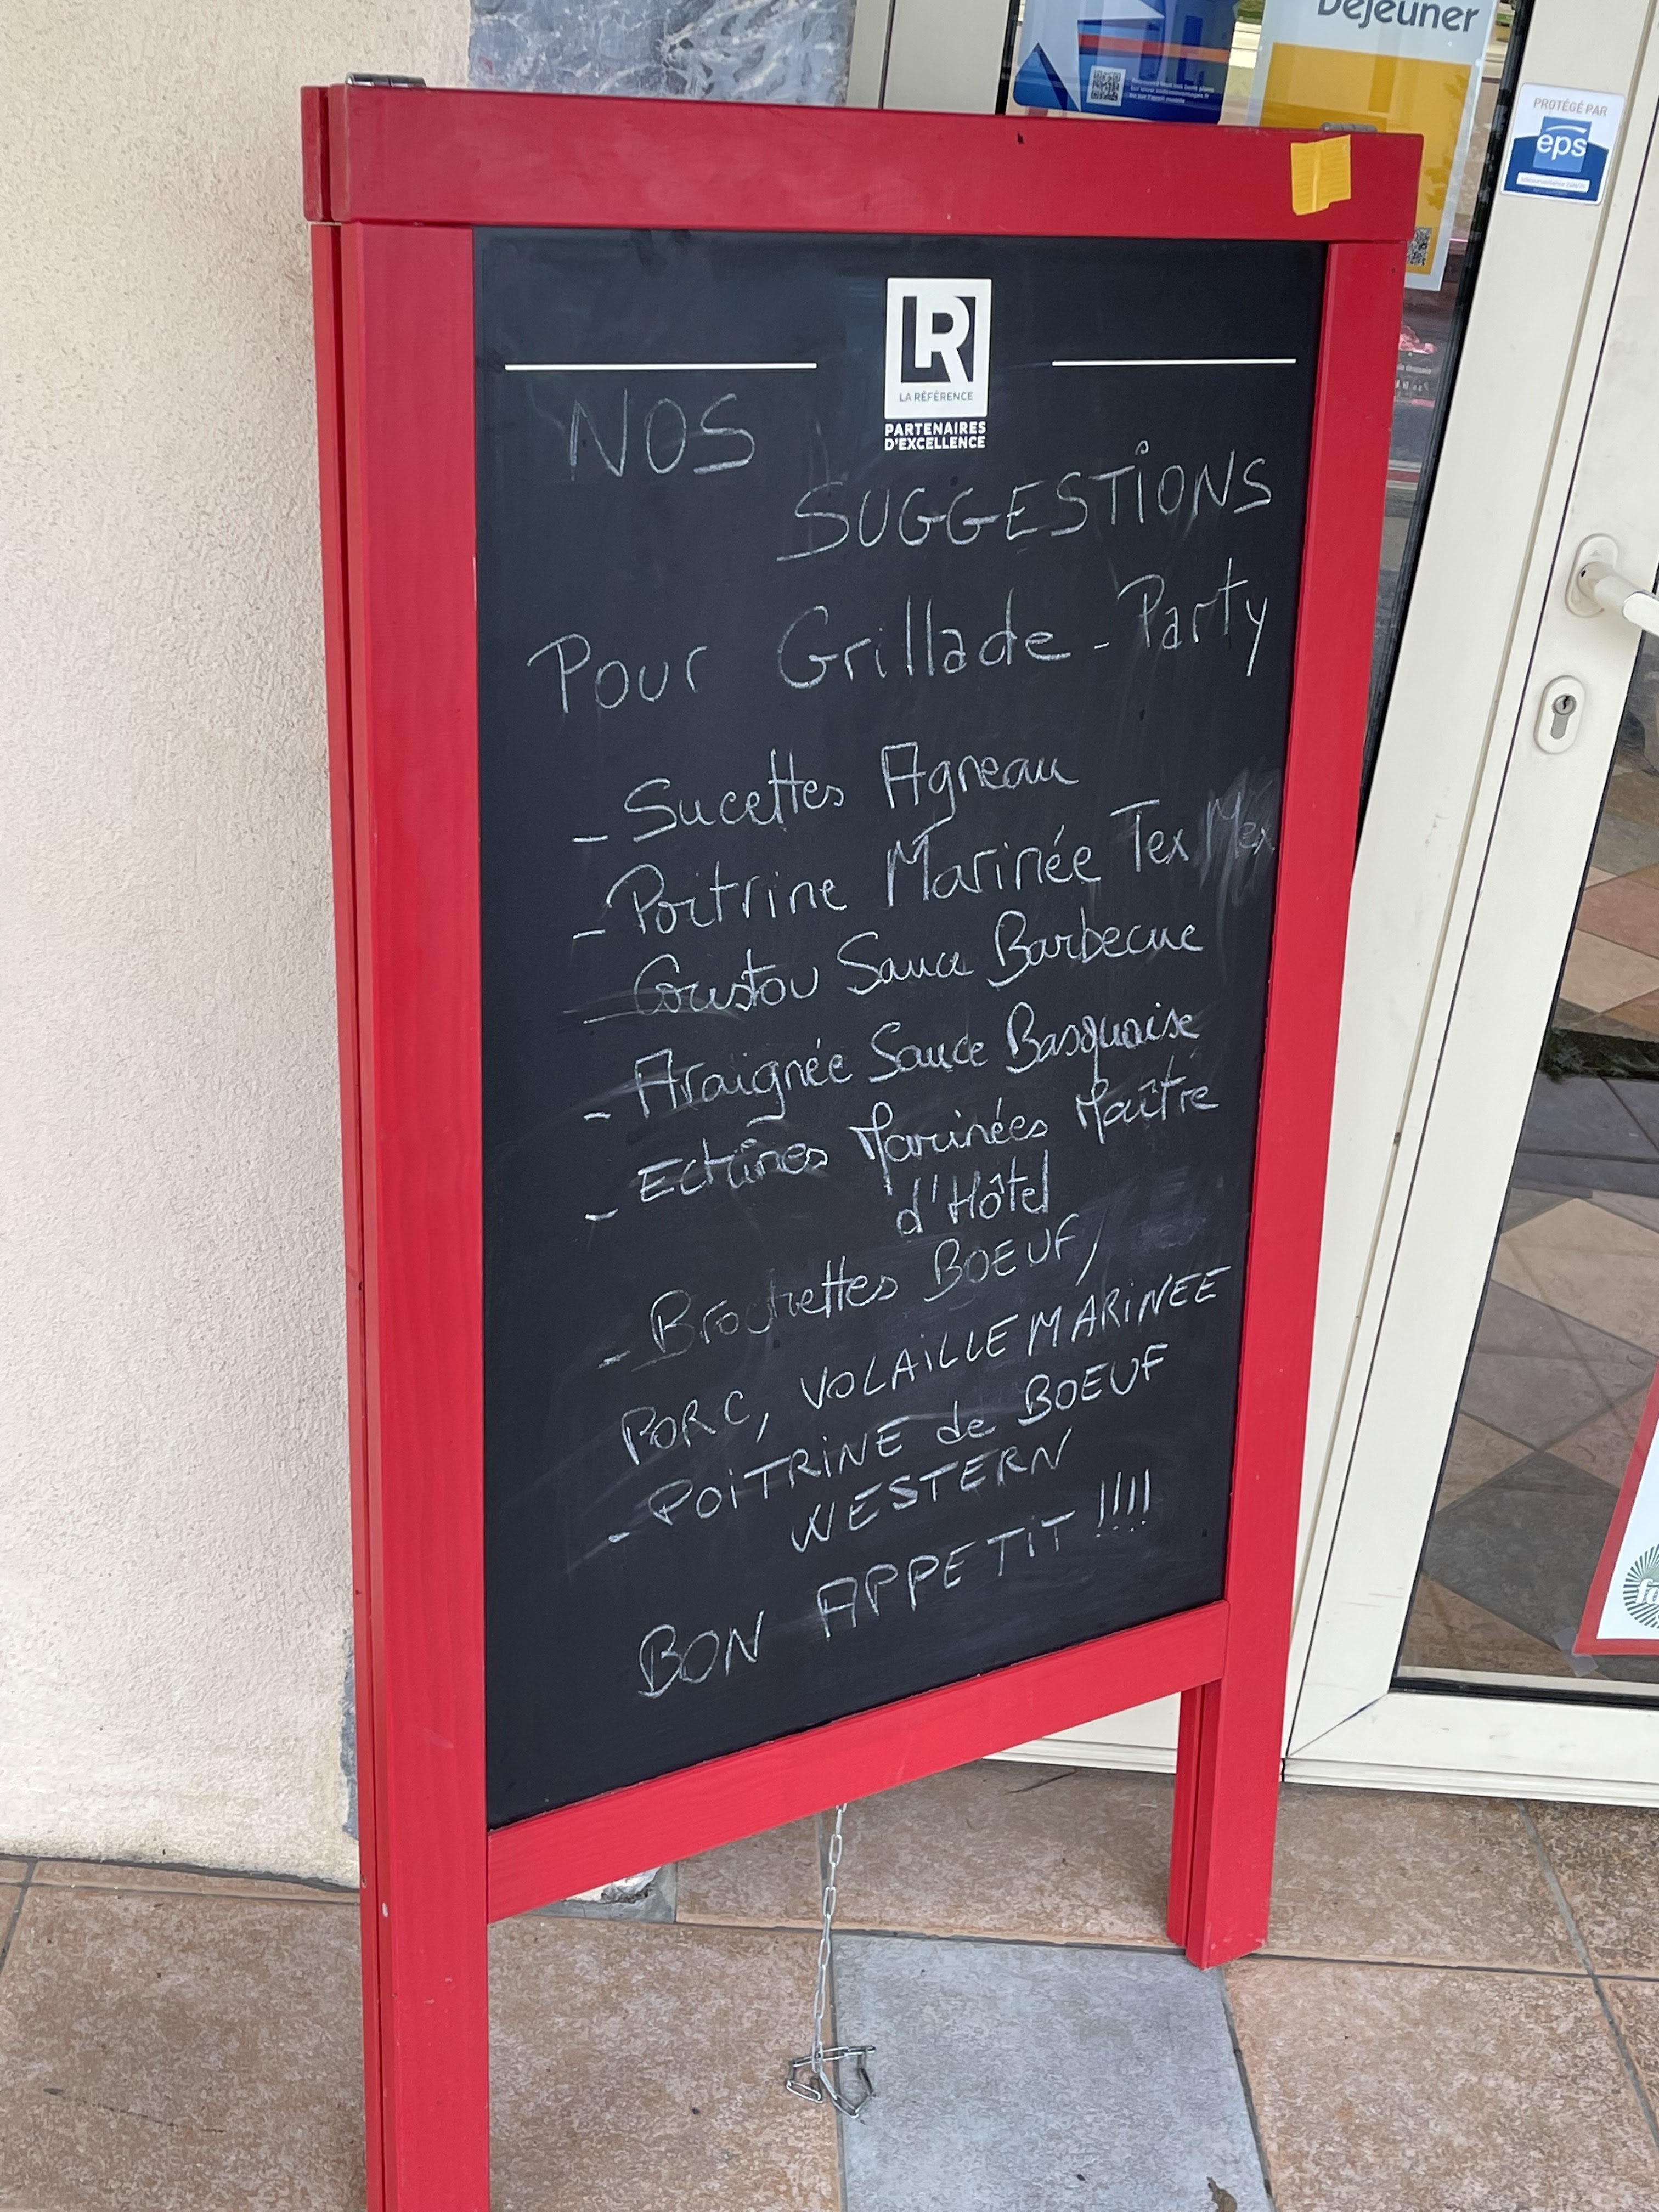 Déjeuner
PROTÉGÉ PAR
eps
LR
LA RÉFÉRENCE
PARTENAIRES
D'EXCELLENCE
NOS
SUGGESTIONS
Pour Grillade - Party
- Sucettes Agneau
- Poitrine Marinée Tex Mex
- Coustou Sauce Barbecue
- Araignée Sauce Basquaise
- Echines Marinées Maître
d'Hôtel
- Brochettes BOEUF,
PORC, VOLAILLE MARINEE
- POITRINE de BOEUF
WESTERN
BON APPETIT !!!!